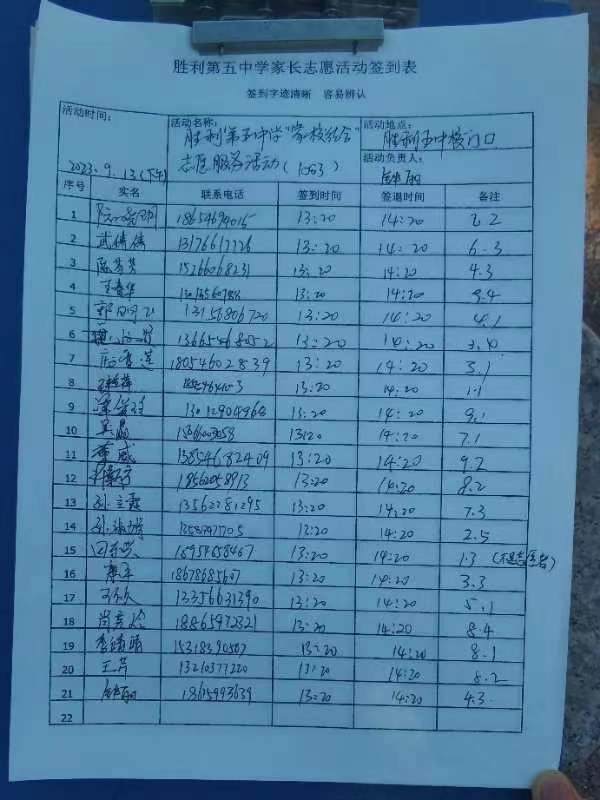 胜利第五中学家长志愿活动签到表
签到字迹清晰 容易辨认
活动时间: 2023.9.13(下午)
活动名称: 胜利第五中学"家校结合"志愿服务活动(1053)
活动地点: 胜利五中校门口
活动负责人:
序号 实名 联系电话 签到时间 签退时间 备注
1 13:20 14:20 2.2
2 武倩倩 13176617726 13:20 14:20 6.3
3 陈芳芳 15266068231 13:20 14:20 4.3
4 13:20 14:20 9.4
5 13156806720 13:20 14:20 4.1
6 13665468052 13:20 14:20 3.4
7 18054602839 13:20 14:20 3.1
8 13:20 14:20 1.1
9 13012904968 13:20 14:20 9.1
10 13:20 14:20 7.1
11 13854682409 13:20 14:20 9.2
12 18562058913 13:20 14:20 8.2
13 13562281295 13:20 14:20 7.3
14 13:20 14:20 2.5
15 13:20 14:20 1.3 (不是志愿者)
16 18678685607 13:20 14:20 3.3
17 13356631390 13:20 14:20 5.1
18 18865972321 13:20 14:20 8.4
19 15318390507 13:20 14:20 8.1
20 王芳 13210377220 13:20 14:20 8.2
21 18615993639 13:20 14:20 4.3
22